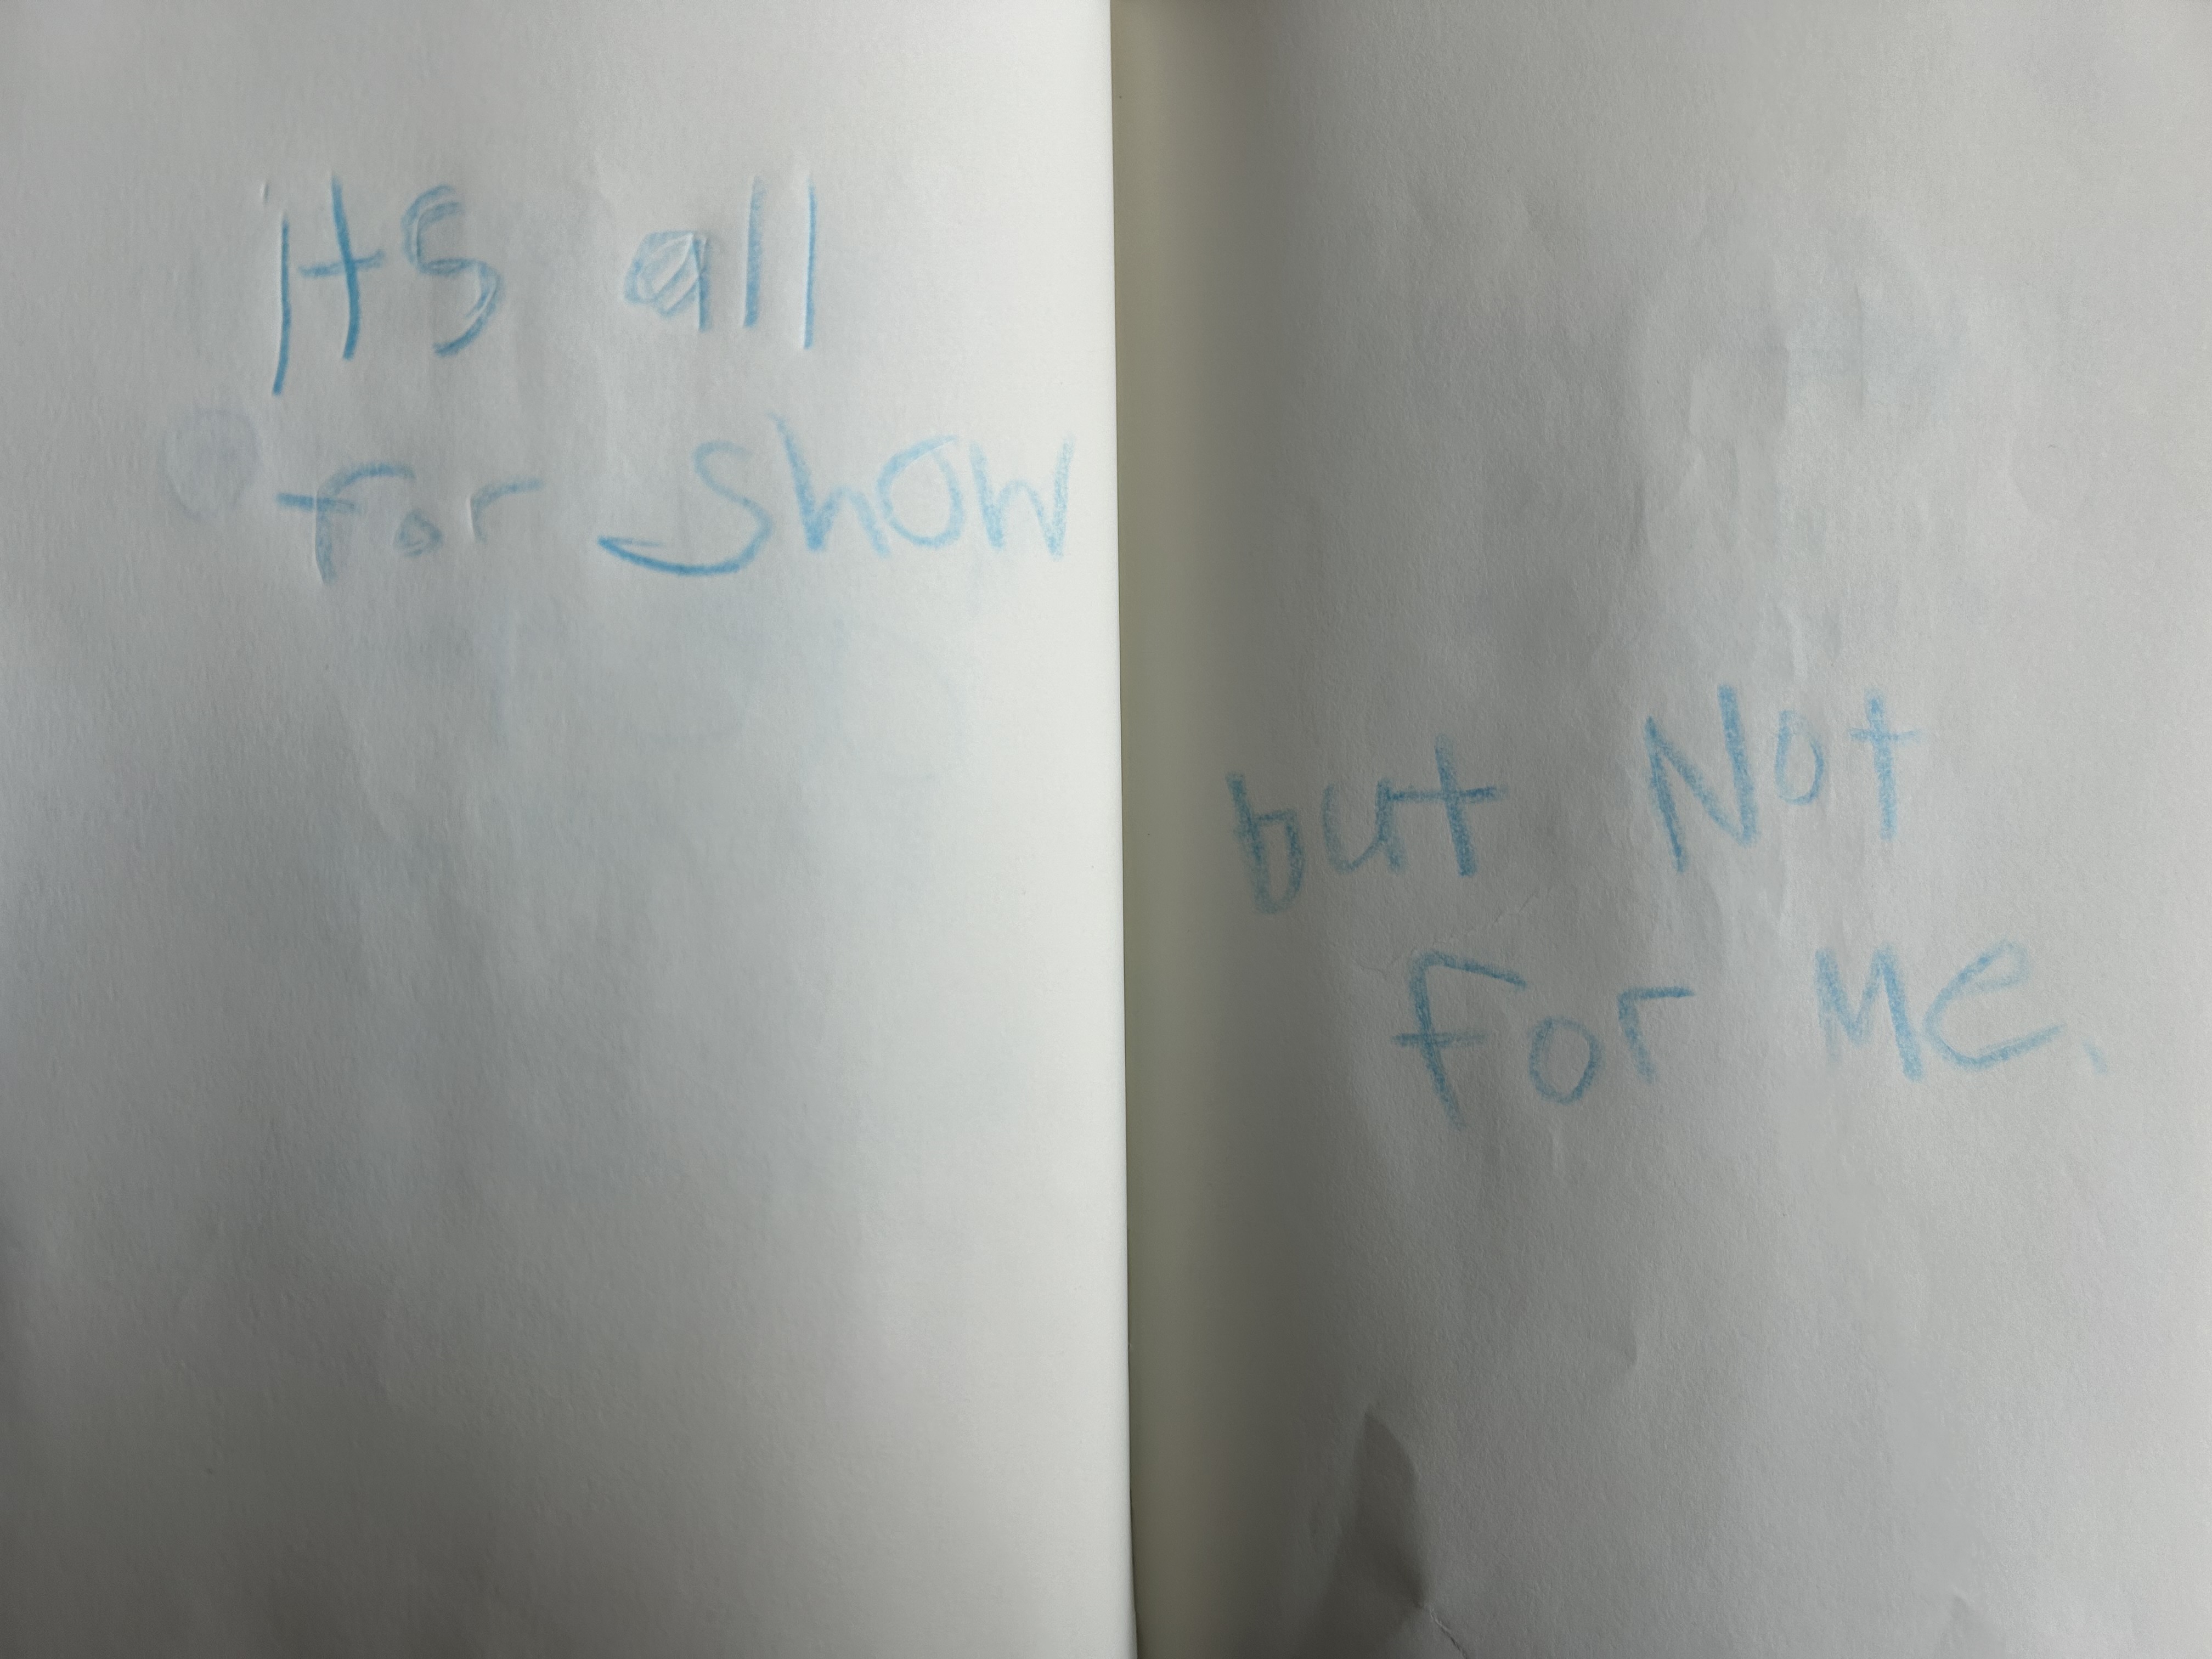 its all
for show
but Not
For Me.